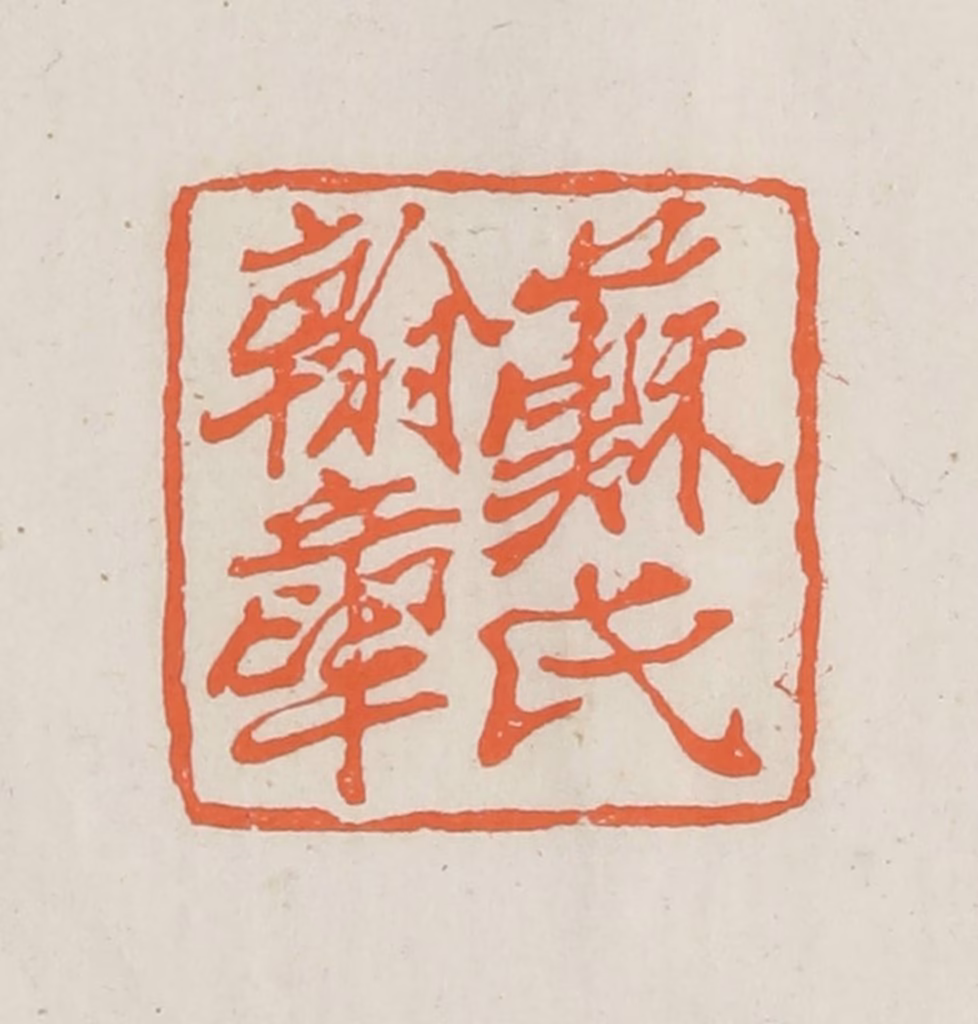 蘇氏
翰章